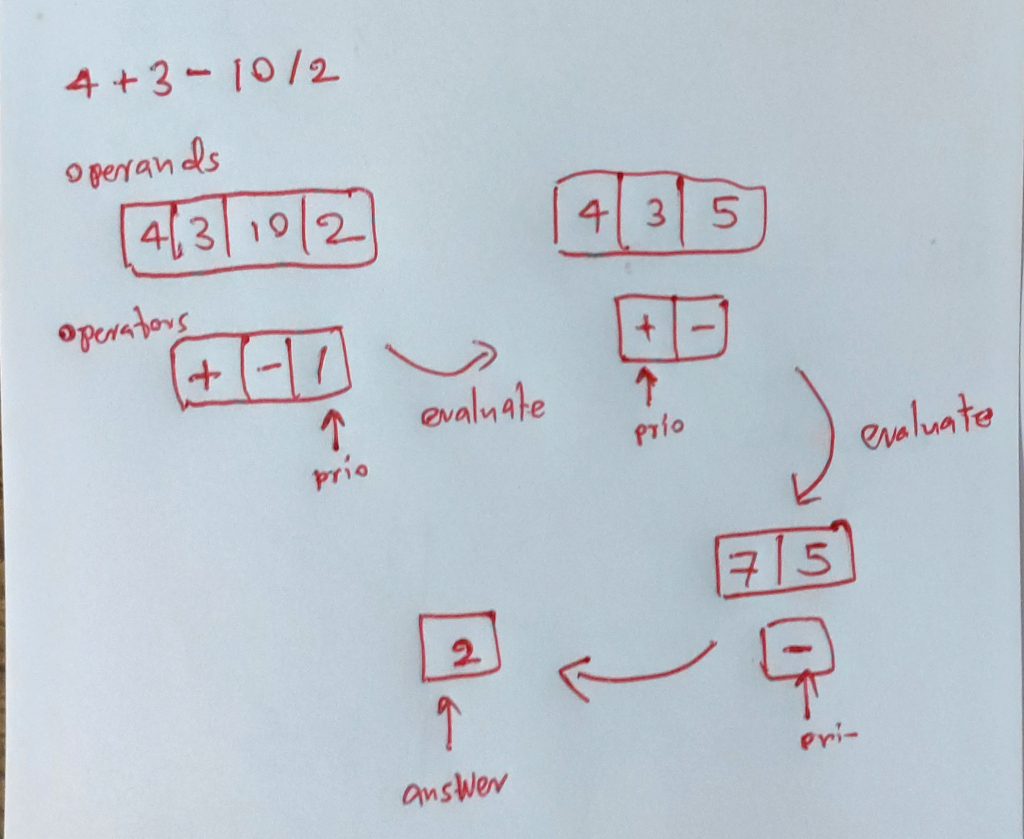 4 + 3 - 10 / 2
operands
4 3 10 2
operators
+ - /
prio
evaluate
4 3 5
+ -
prio
evaluate
7 5
-
pri-
2
answer